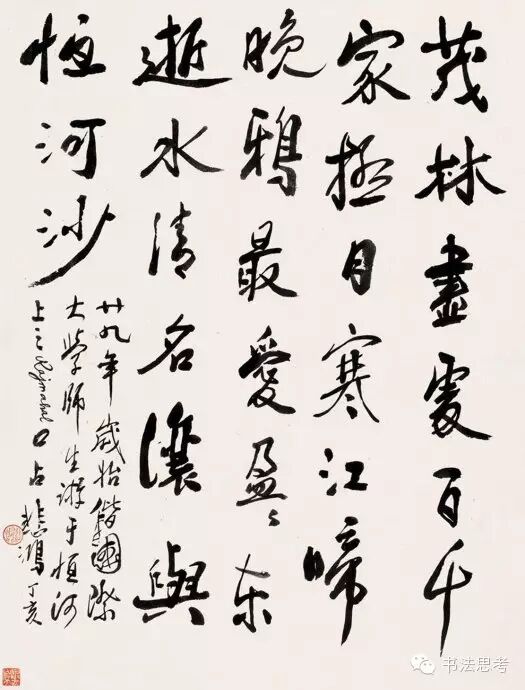 茂林盡處百千
家極目寒江啼
晚鴉最愛盈〻東
逝水清名讓與
恆河沙
廿九年歲始偕國際
大學師生游于恒河
上之Rajmahal口占
悲鴻丁亥
书法思考